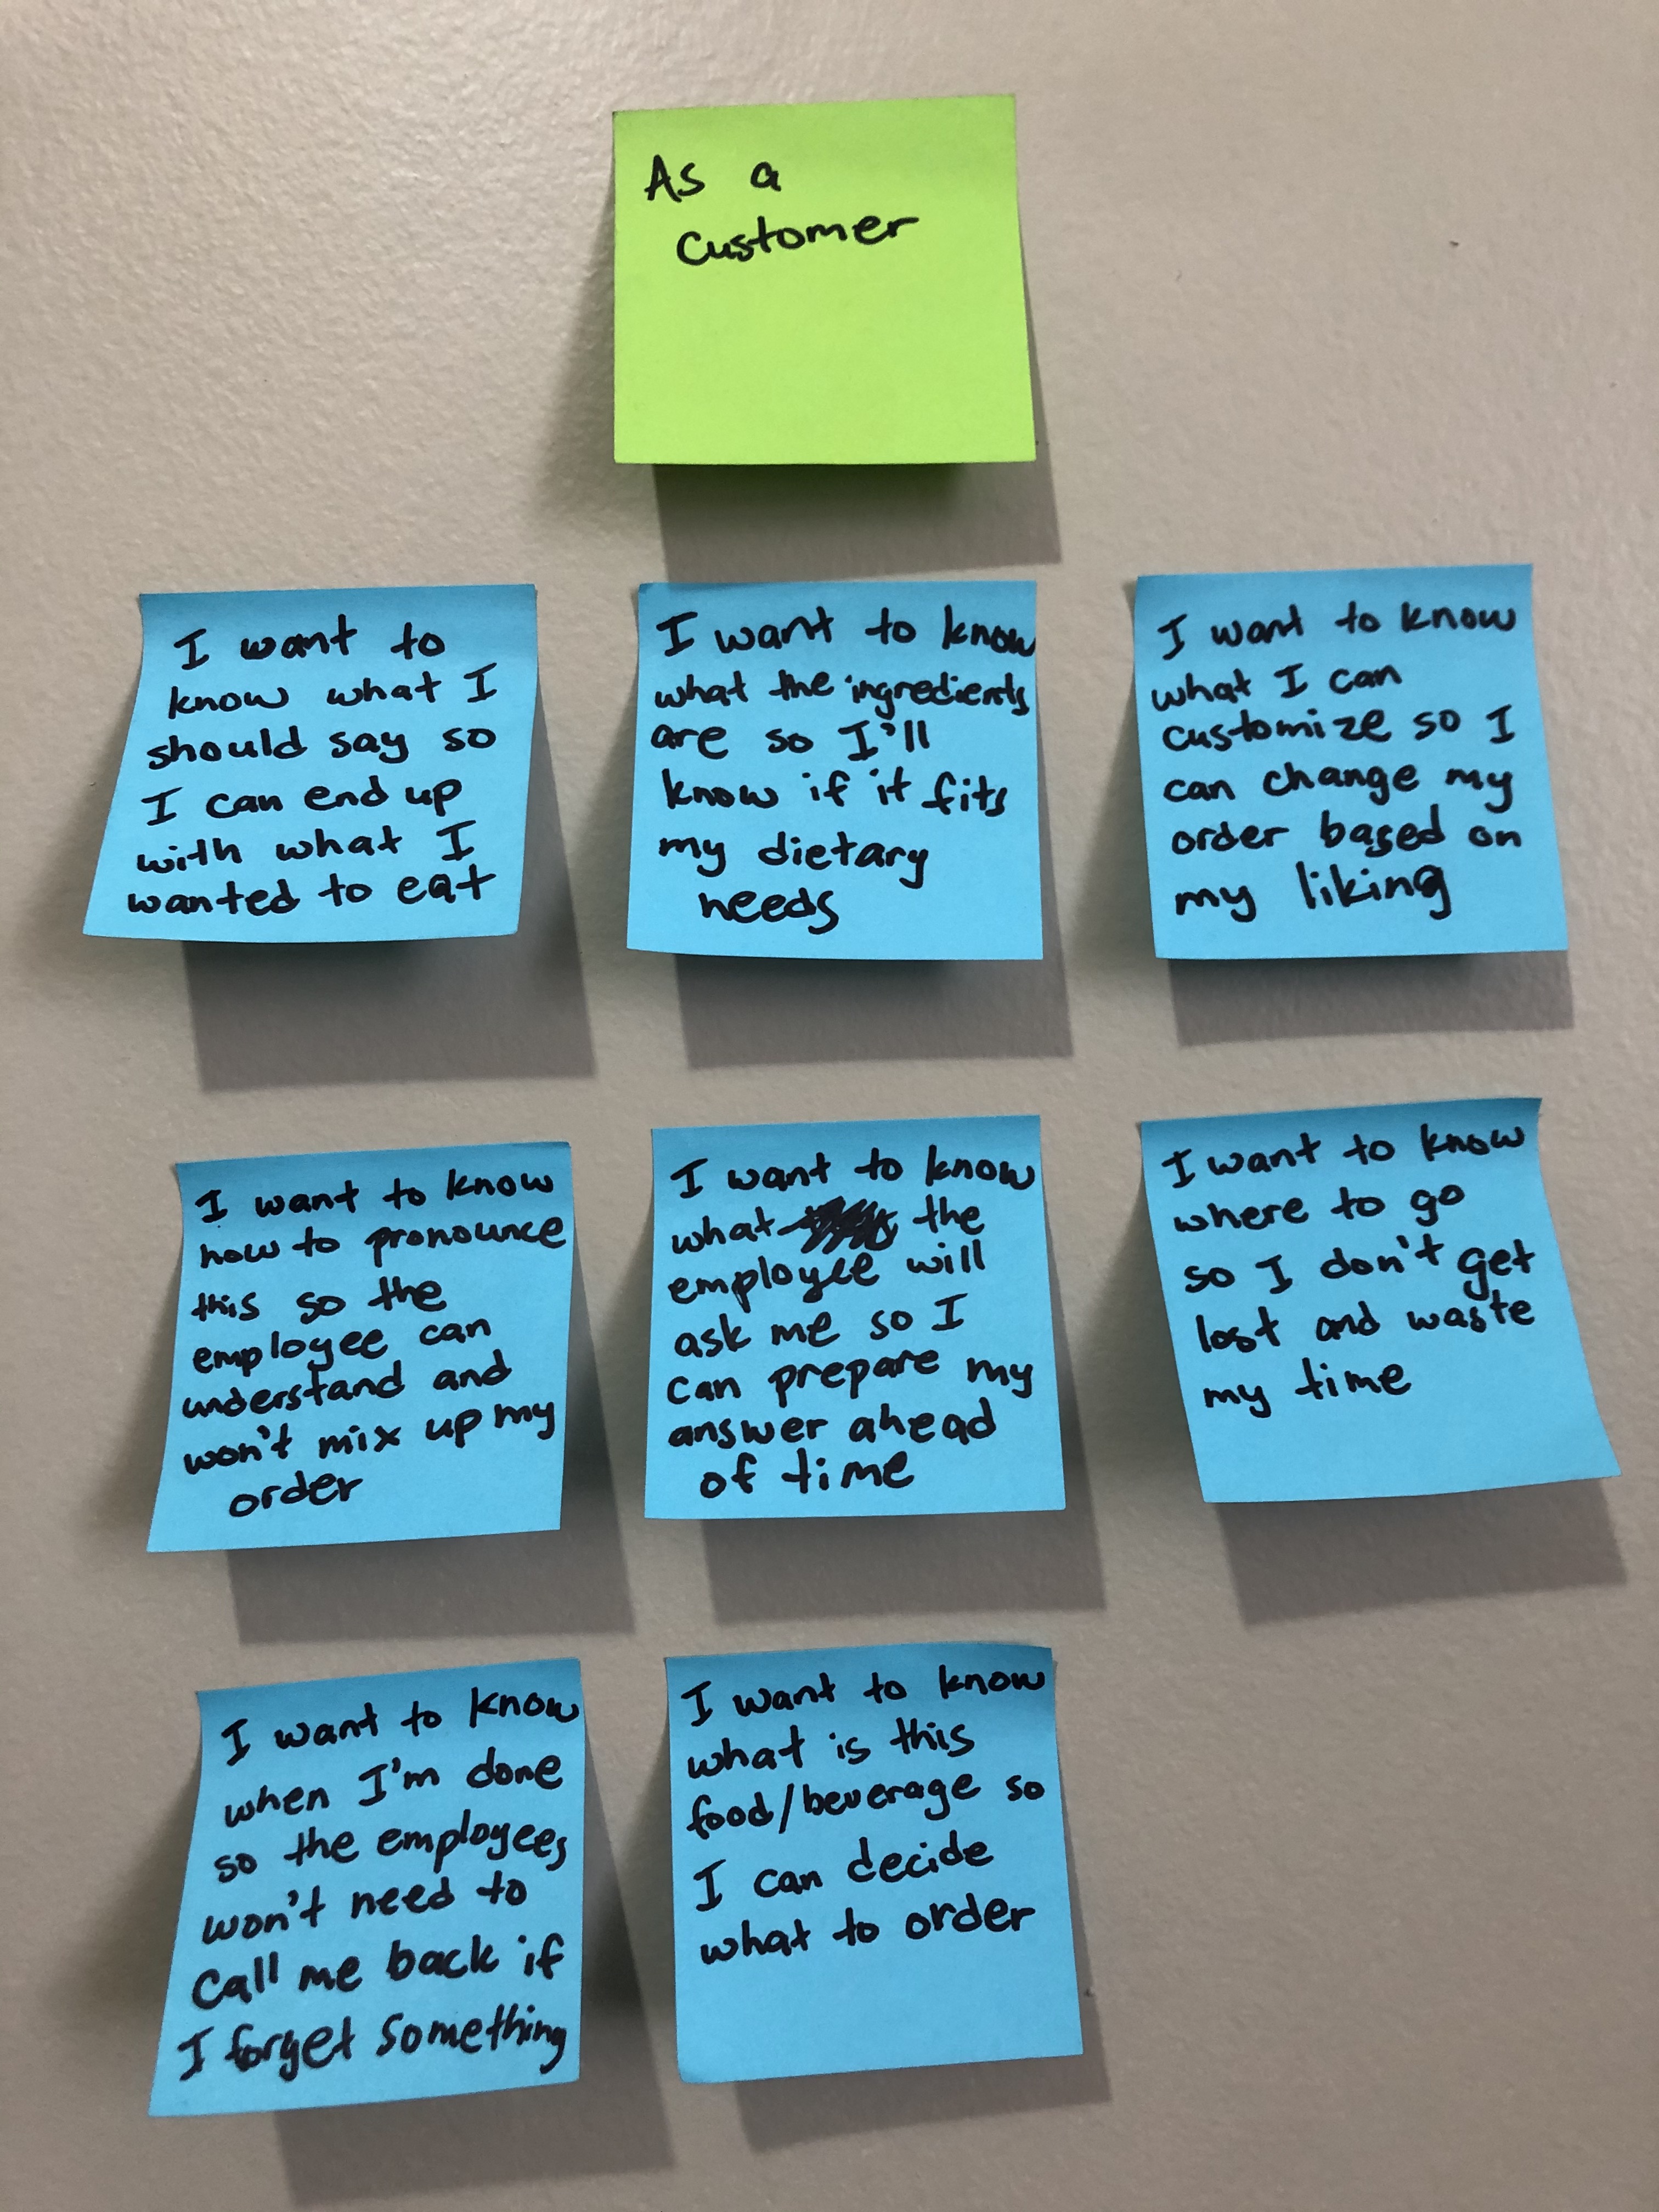 As a
customer
I want to
know what I
should say so
I can end up
with what I
wanted to eat
I want to know
what the ingredients
are so I'll
know if it fits
my dietary
needs
I want to know
what I can
customize so I
can change my
order based on
my liking
I want to know
how to pronounce
this so the
employee can
understand and
won't mix up my
order
I want to know
what the
employee will
ask me so I
can prepare my
answer ahead
of time
I want to know
where to go
so I don't get
lost and waste
my time
I want to know
when I'm done
so the employees
won't need to
call me back if
I forget something
I want to know
what is this
food/beverage so
I can decide
what to order